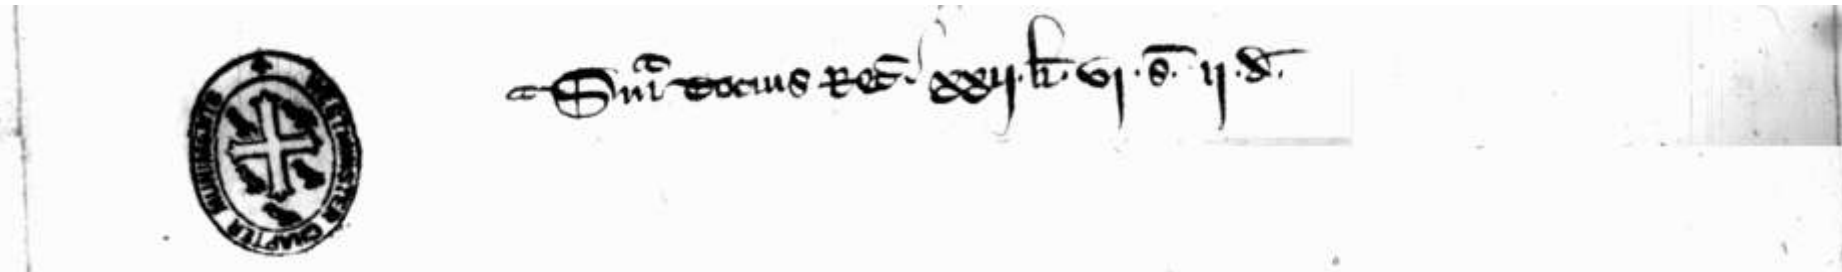 Sm̄a tocius Rec̄. xxij. li̅. vj. s̅. ij. d̅.
WESTMINSTER CHAPTER MUNIMENTS